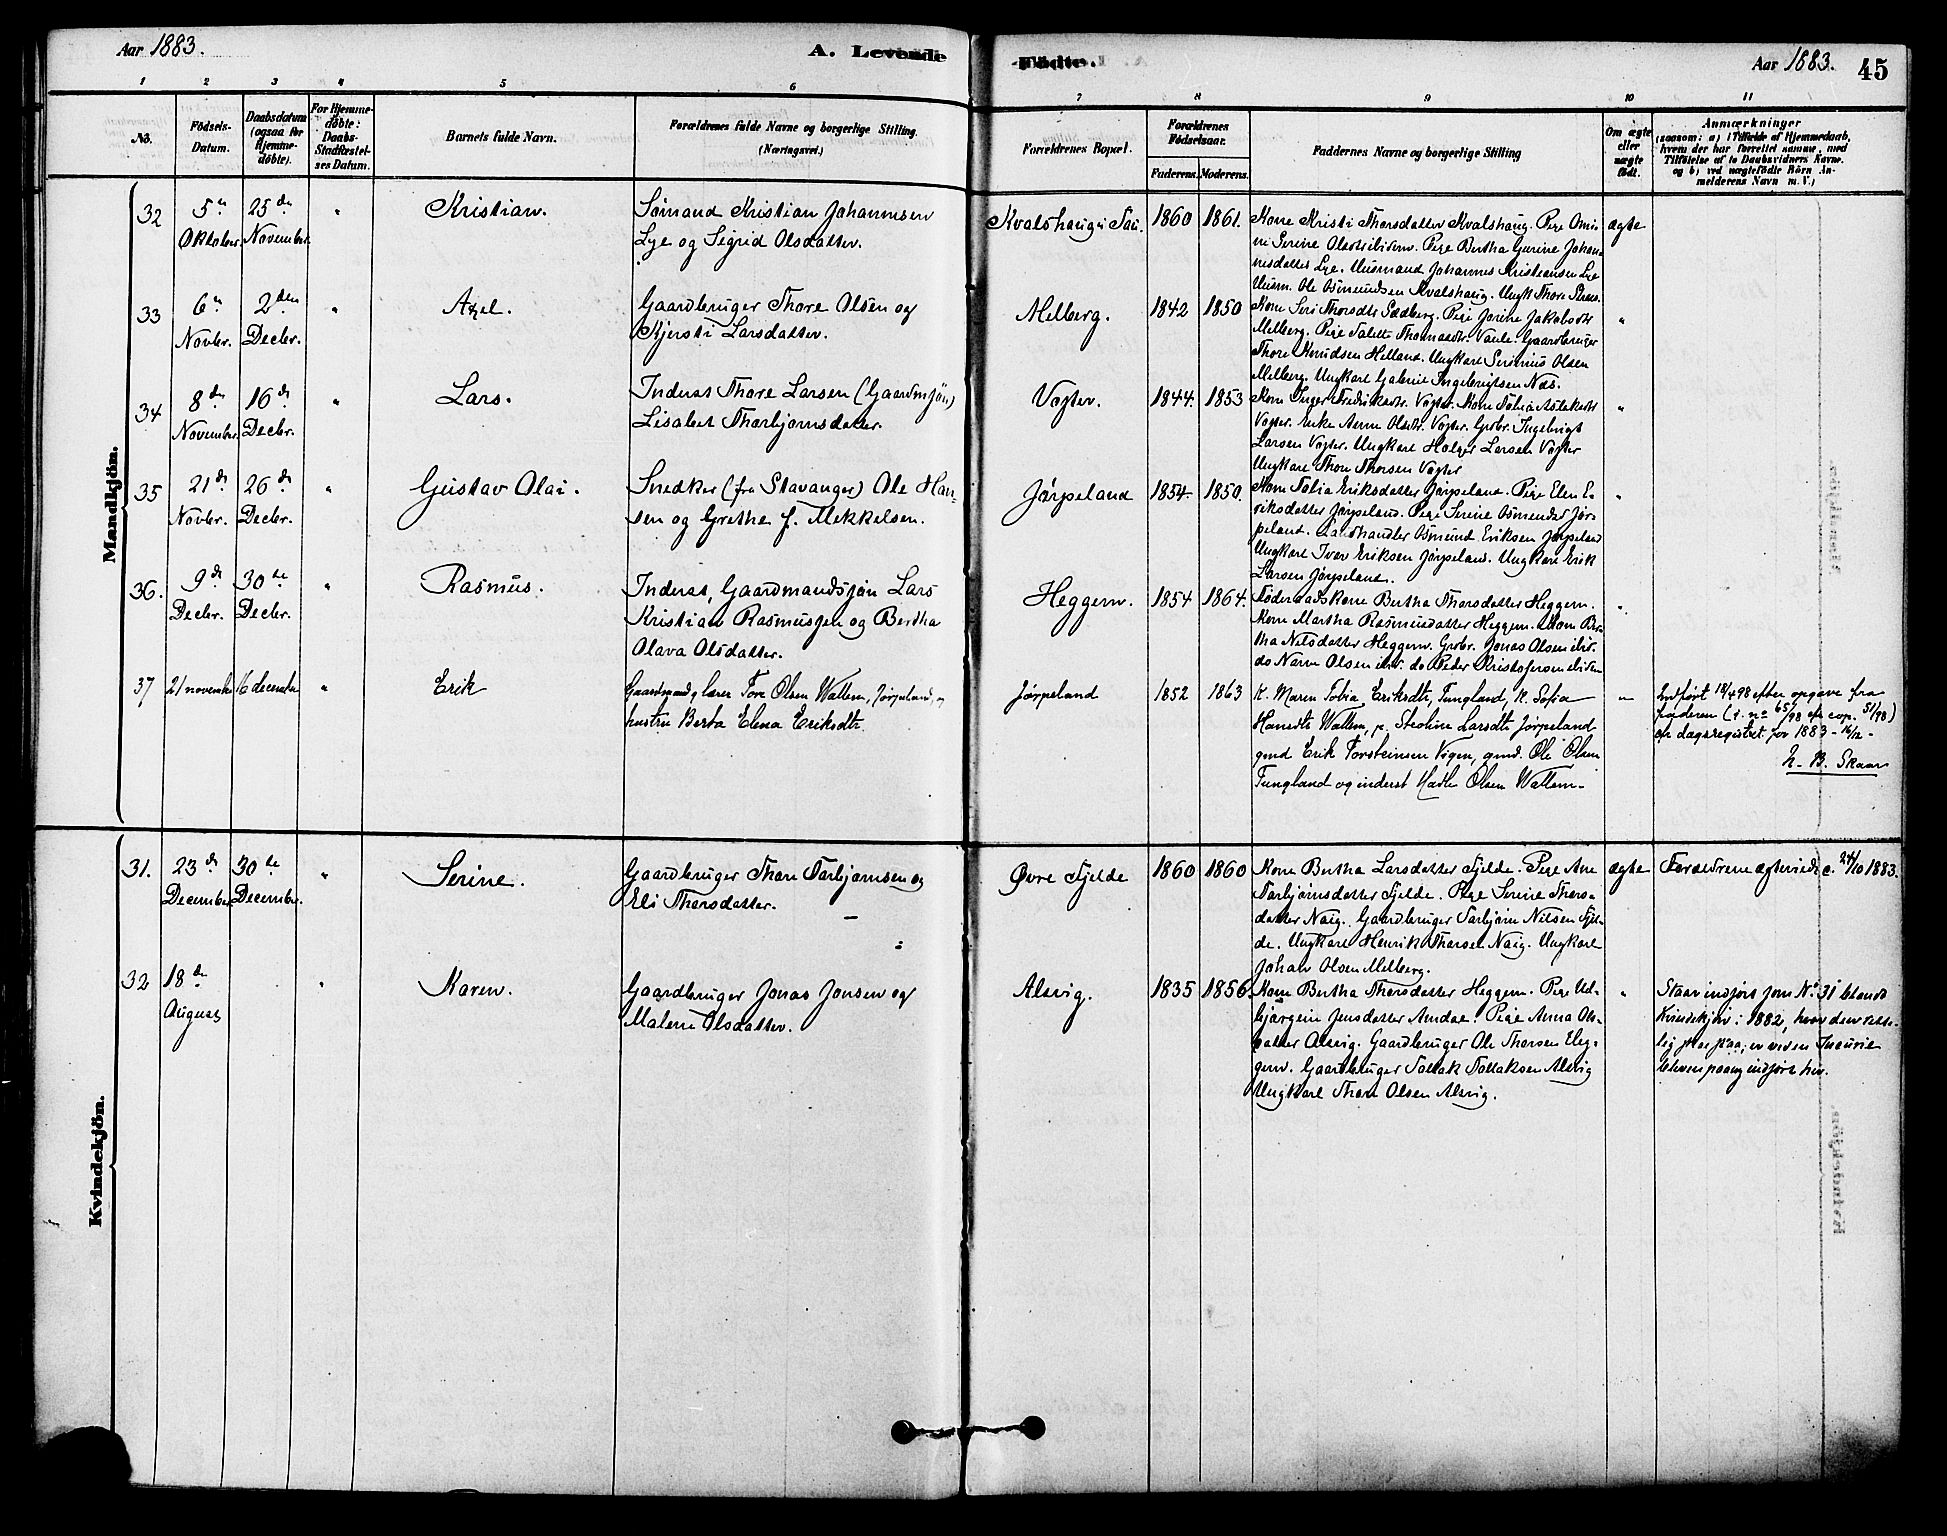 Aar 1883.
A. Levende
Fødte.
Aar 1883.
45
1 2 3 4 5 6 7 8 9 10 11
No.
Födsels-Datum.
Daabsdatum (ogsaa for Hjemme-döbte).
For Hjemme-döbte: Daabs-Stadfæstel-ses Datum.
Barnets fulde Navn.
Forældrenes fulde Navne og borgerlige Stilling.
(Næringsvei.)
Forældrenes Bopæl.
Forældrenes Fødselsaar.
Faderens. Moderens.
Faddernes Navne og borgerlige Stilling
Om ægte eller uægte födt.
Anmærkninger
(saasom: a) i Tilfælde af Hjemmedaab,
hvem der har forrettet samme, med
Tilföielse af to Daabsvidners Navne.
og b) ved uægtefödte Börn An-
melderens Navn m. V.)
Mandkjön.
32
5te Oktober.
25de November.
"
Kristian.
Sømand Kristian Johannesen
Lye og Sigrid Olsdatter.
Kvalshaug i Tau.
1860
1861.
Kone Kristi Thorsdatter Kvalshaug. Pige
Serine Pige Bertha Gurine Johan-
nesdatter Lye. Husmand Johannes Kristiansen Lye
Husm. Ole Osmundsen Kvalshaug. Ungk. Thore
ægte
33
6te Novbr.
2den Decbr.
"
Axel.
Gaardbruger Thore Olsen og
Kjersti Larsdatter.
Melberg.
1842
1850
Kone Siri Thorsdtr Sedberg. Pige Jorine Jakobsdtr
Melberg. Pige Talette Thomasdtr. Vaule. Gaardbruger
Thore Knudsen Helland. Ungkarl Serinius Olsen
Melberg. Ungkarl Gabriel Ingebrigtsen Næs.
"
34
8de November.
16de Decbr.
"
Lars.
Inderst Thore Larsen (Gaardmsøn)
Lisabet Thorbjørnsdatter.
Vogter.
1844.
1853
Kone Inger Fredriksdtr. Vogter. Kone Tobia Aslaksdtr
Vogter. Enke Anne Olsdtr. Vogter. Grbr. Ingebrigt
Larsen Vogter. Ungkarl Holger Larsen Vogter
Ungkarl Thore Thorsen Vogter
"
35
21de Novbr.
26de Decbr.
"
Gustav Olai.
Snedker (fra Stavanger) Ole Han-
sen og Grethe f. Mekkelsen.
Jørpeland
1854.
1850.
Kone Tobia Eriksdatter Jørpeland. Pige Elen E-
riksdatter Jørpeland. Pige Serine Osmundsd Jør-
peland. Landhandler Osmund Eriksen Jørpeland
Ungkarl Iver Eriksen Jørpeland. Ungkarl Erik
Larsen Jørpeland.
"
36.
9de Decbr.
30te Decbr.
"
Rasmus.
Inderst, Gaardmandsjøn Lars
Kristian Rasmusjen og Bertha
Olava Olsdatter.
Heggem.
1854
1864.
Føderaadskone Bertha Thorsdatter Heggem.
Kone Martha Rasmusdatter Heggem. Kone Ber-
tha Nilsdatter Heggem. Grbr. Jonas Olsen ibid.
do Narve Olsen ibid. do Peder Kristofersen ibidem
"
37
21 novembr
16 decembr
"
Erik
Gaardmand, lærer Tore Olsen Wattem, Jørpeland, og
hustru Berta Elena Eriksdtr.
Jørpeland
1852
1863
K. Maren Tobia Eriksdtr, Tungland, K. Sofia
Hansdtr Wattem, p. Steoline Larsdtr Jørpeland
gmd Erik Torsteinsen Vigen, gmd. Ole Olsen
Tungland og inderst Hadle Olsen Wattem.
"
Indført 18/4 98 efter opgave fra
faderen (j. no 65/98 cfr cop. 51/98)
cfr dagsregistret for 1883 - 16/12 -
N. B. Skaar
Kvindekjön.
31.
23de December.
30te December.
"
Serine.
Gaardbruger Thore Torbjørnsen og
Eli Thorsdatter.
Øvre Fjelde
1860
1860
Kone Bertha Larsdatter Fjelde. Pige Ane
Torbjørnsdatter Fjelde. Pige Serine Thors-
datter Naig. Gaardbruger Torbjørn Nilsen Fjel-
de. Ungkarl Henrik Thorsen Naig. Ungkarl
Johan Olsen Melberg.
ægte
Forældrene ægteviede c. 24/10 1883.
32
18de August
"
Karen.
Gaardbruger Jonas Jonsen og
Malene Olsdatter.
Alsvig.
1835
1856.
Kone Bertha Thorsdatter Heggem. Pige Val-
bjørgine Jensdatter Amdal. Pige Anna Ols-
datter Alsvig. Gaardbruger Ole Thorsen
Gaardbruger Tollak Tollaksen Alsvig
Ungkarl Thore Olsen Alsvig.
"
Staar indført som No 31 blandt
Kvindekjøn i 1882, hvor den rette-
lig er ved en Incurie
bleven paany indført her.